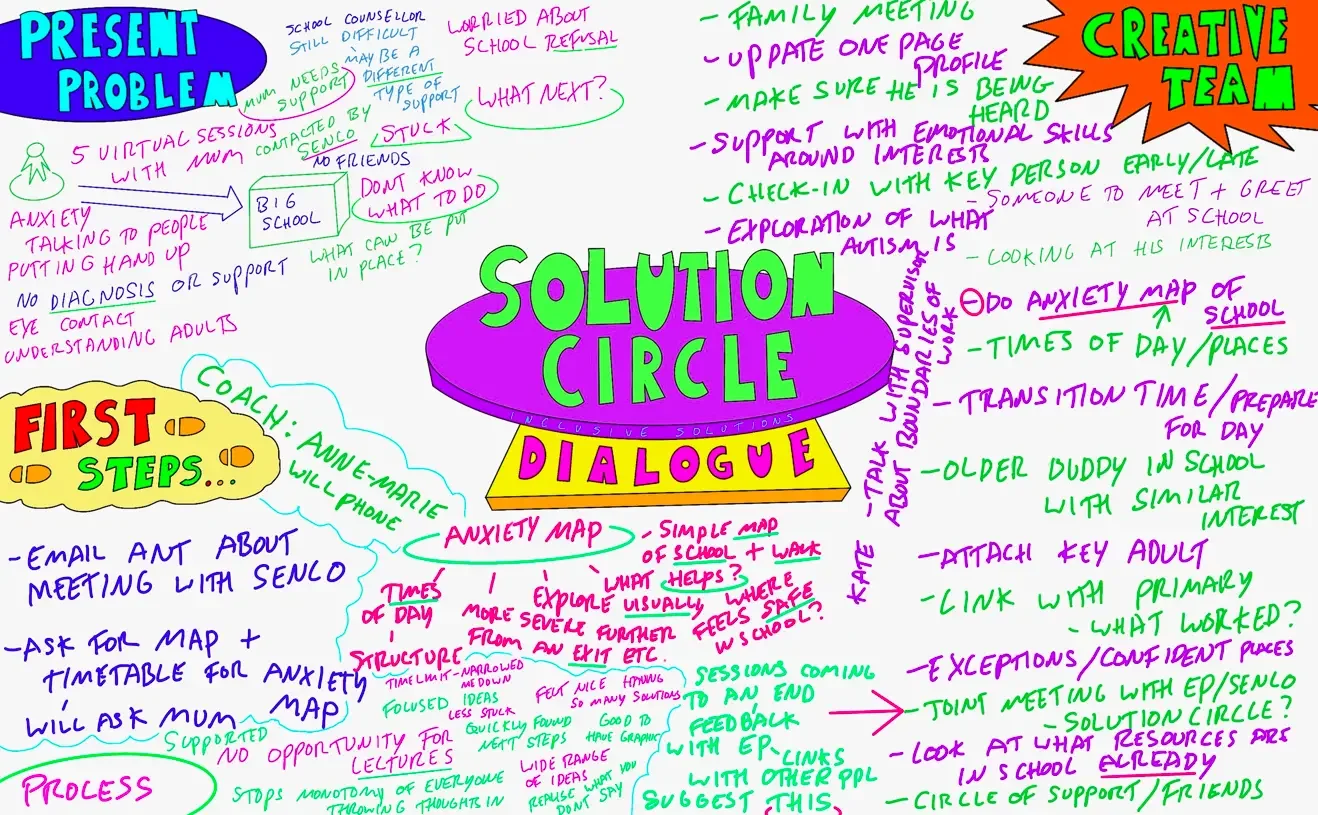 PRESENT
PROBLEM
SCHOOL COUNSELLOR
STILL DIFFICULT
MAYBE A
DIFFERENT
TYPE OF
SUPPORT
WORRIED ABOUT
SCHOOL REFUSAL
MUM NEEDS
SUPPORT
WHAT NEXT?
5 VIRTUAL SESSIONS
WITH MUM
CONTACTED BY
SENCO
STUCK
NO FRIENDS
BIG
SCHOOL
DONT KNOW
WHAT TO DO
WHAT CAN BE PUT
IN PLACE?
ANXIETY
TALKING TO PEOPLE
PUTTING HAND UP
NO DIAGNOSIS OR SUPPORT
EYE CONTACT
UNDERSTANDING ADULTS
SOLUTION
CIRCLE
INCLUSIVE SOLUTIONS
DIALOGUE
CREATIVE
TEAM
- FAMILY MEETING
- UPDATE ONE PAGE
PROFILE
- MAKE SURE HE IS BEING
HEARD
- SUPPORT WITH EMOTIONAL SKILLS
AROUND INTERESTS
- CHECK-IN WITH KEY PERSON EARLY/LATE
- SOMEONE TO MEET + GREET
AT SCHOOL
- EXPLORATION OF WHAT
AUTISM IS
- LOOKING AT HIS INTERESTS
DO ANXIETY MAP OF
SCHOOL
- TIMES OF DAY/PLACES
- TRANSITION TIME/PREPARE
FOR DAY
- OLDER BUDDY IN SCHOOL
WITH SIMILAR
INTEREST
- ATTACH KEY ADULT
- LINK WITH PRIMARY
- WHAT WORKED?
- EXCEPTIONS/CONFIDENT PLACES
- JOINT MEETING WITH EP/SENCO
- SOLUTION CIRCLE?
- LOOK AT WHAT RESOURCES ARE
IN SCHOOL ALREADY
- CIRCLE OF SUPPORT/FRIENDS
KATE - TALK WITH SUPERVISOR
ABOUT BOUNDARIES OF
WORK
FIRST
STEPS...
COACH: ANNE-MARIE
WILL PHONE
- EMAIL ANT ABOUT
MEETING WITH SENCO
- ASK FOR MAP +
TIMETABLE FOR ANXIETY
MAP
WILL ASK MUM
ANXIETY MAP
TIMES
OF DAY
STRUCTURE
MORE SEVERE FURTHER
FROM AN EXIT ETC.
EXPLORE USUALLY
- SIMPLE MAP
OF SCHOOL + WALK
WHAT HELPS?
WHERE
FEELS SAFE
IN SCHOOL?
PROCESS
SUPPORTED
NO OPPORTUNITY FOR
LECTURES
STOPS MONOTONY OF EVERYONE
THROWING THOUGHTS IN
TIME LIMIT - NARROWED
ME DOWN
FOCUSED IDEAS
LESS STUCK
QUICKLY FOUND
NEXT STEPS
FELT NICE HAVING
SO MANY SOLUTIONS
GOOD TO
HAVE GRAPHIC
WIDE RANGE
OF IDEAS
REALISE WHAT YOU
DONT SAY
SESSIONS COMING
TO AN END
FEEDBACK
WITH EP
LINKS
WITH OTHER PPL
SUGGEST THIS